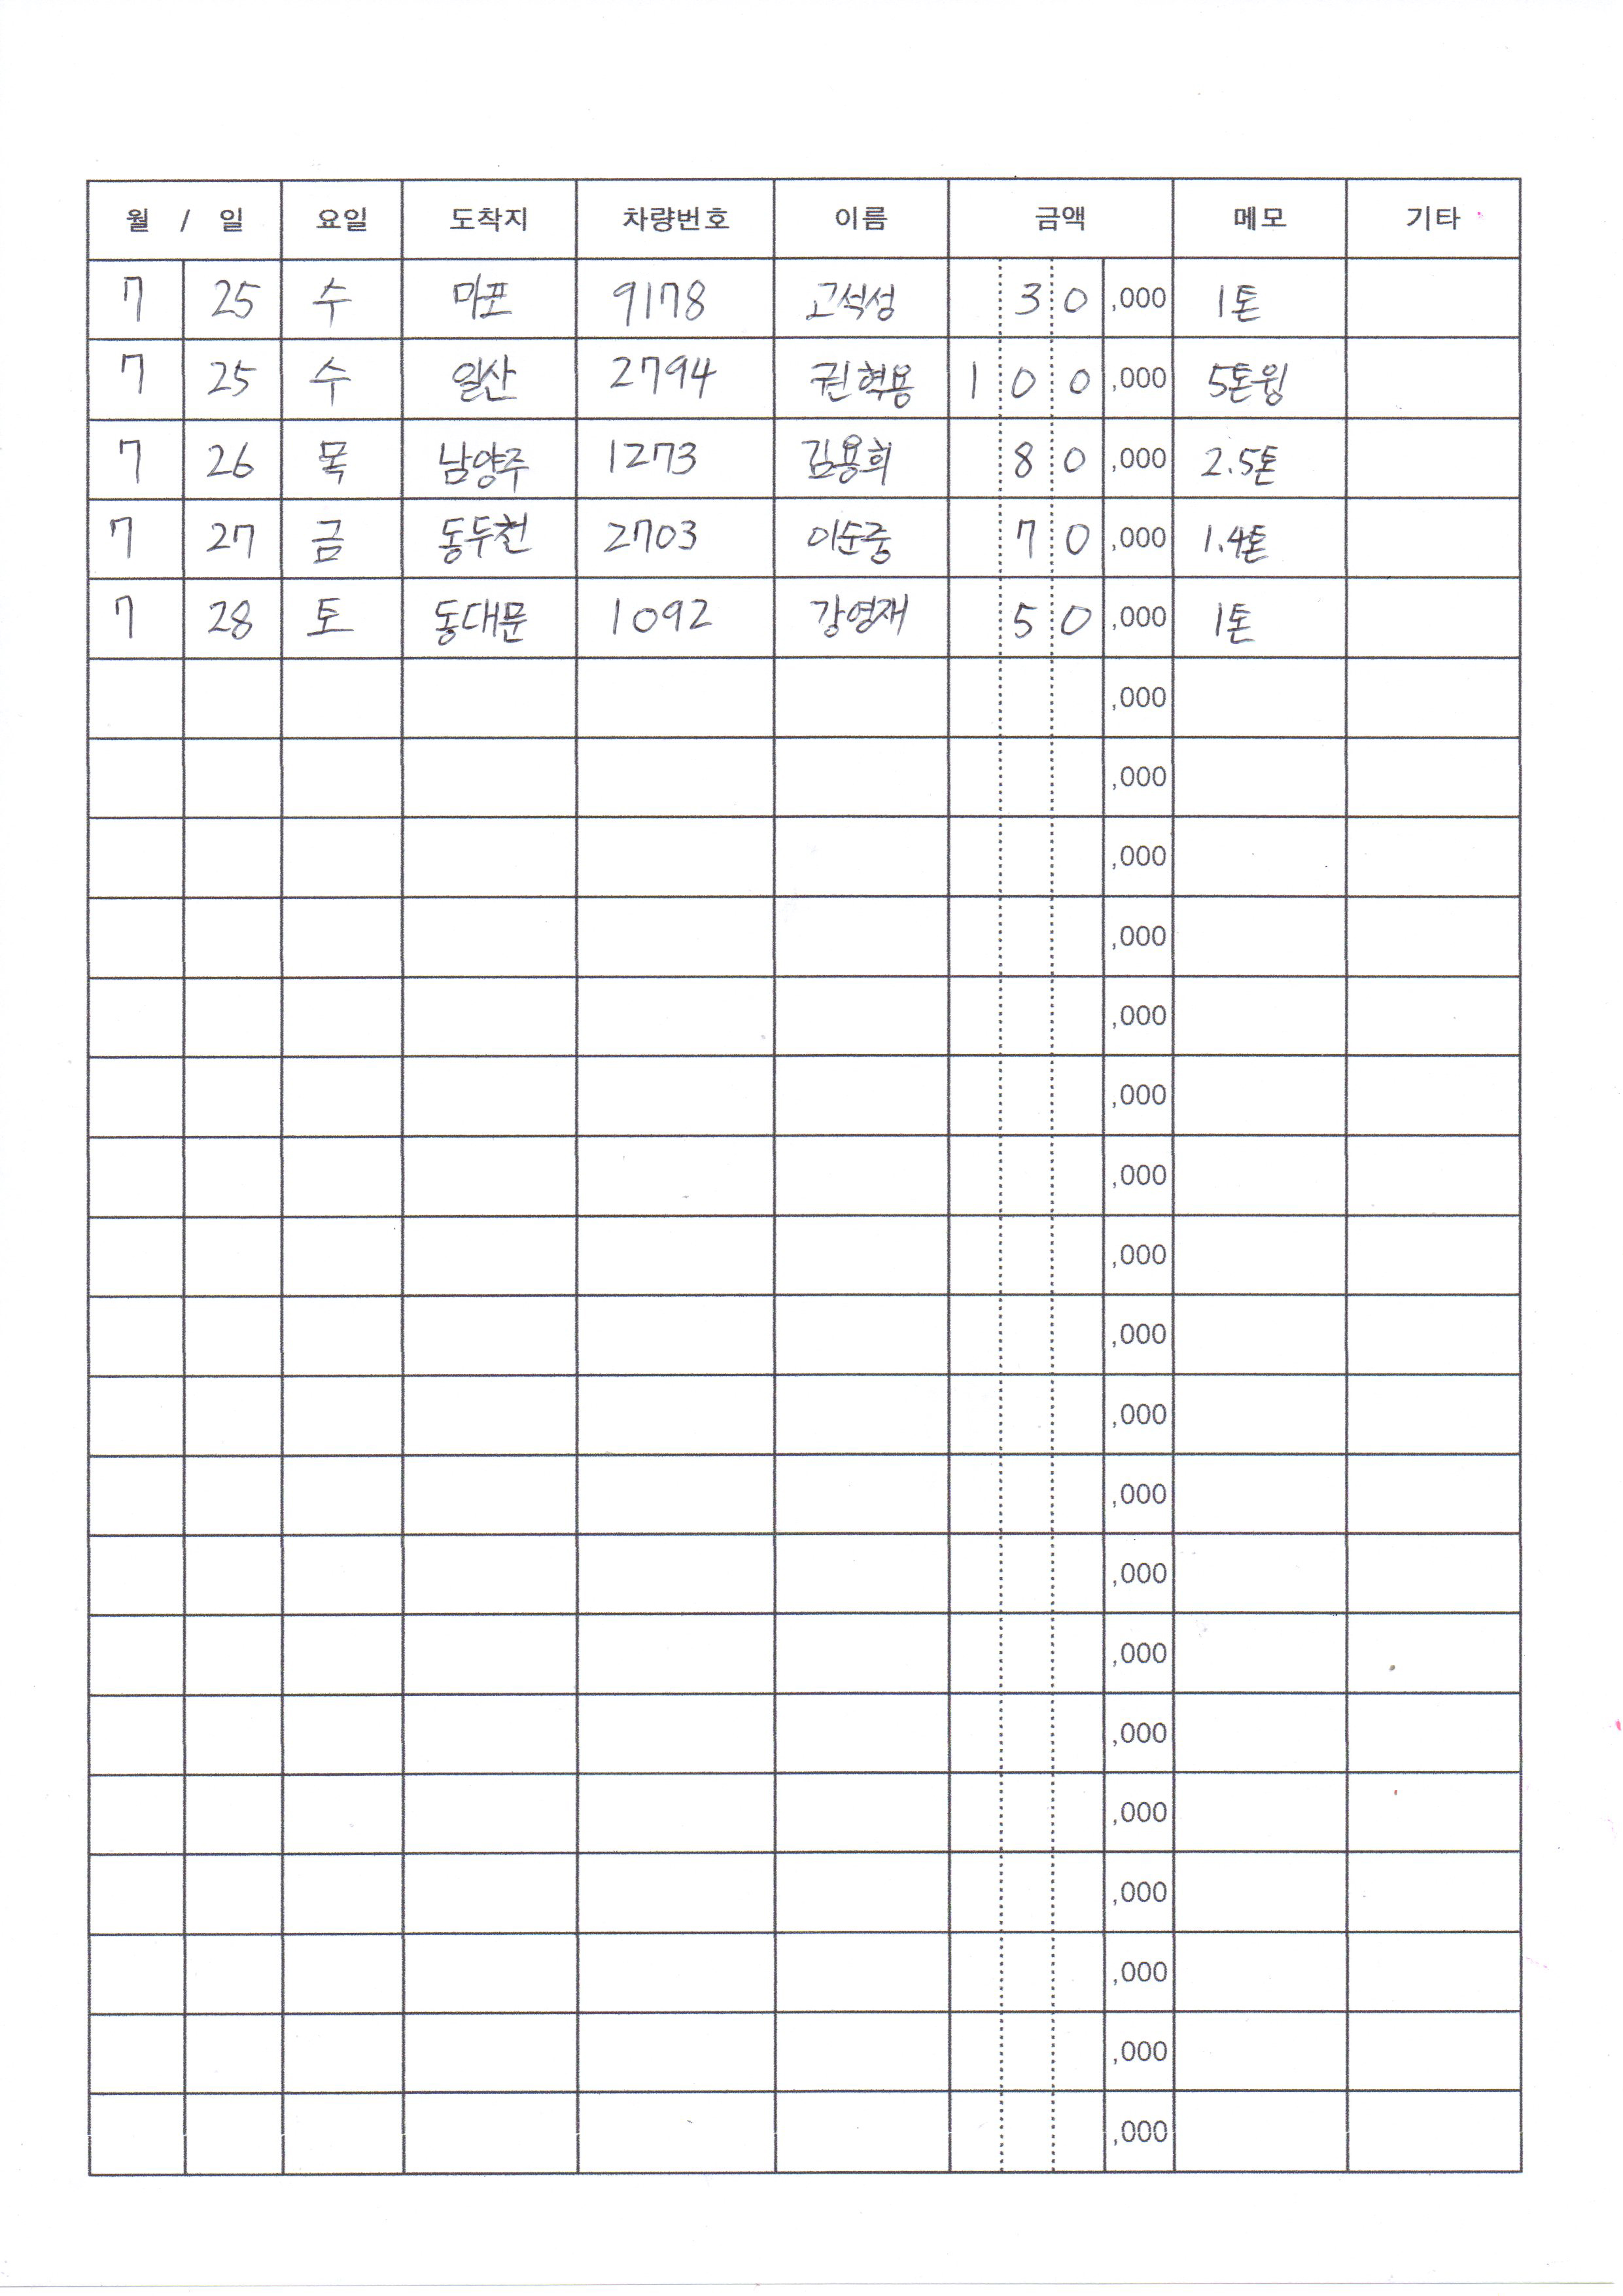 월 / 일 요일 도착지 차량번호 이름 금액 메모 기타
7 25 수 마포 9178 고석성 30,000 1톤
7 25 수 일산 2794 권혁용 100,000 5톤윙
7 26 목 남양주 1273 김용희 80,000 2.5톤
7 27 금 동두천 2703 이순중 70,000 1.4톤
7 28 토 동대문 1092 강영재 50,000 1톤
,000
,000
,000
,000
,000
,000
,000
,000
,000
,000
,000
,000
,000
,000
,000
,000
,000
,000
,000